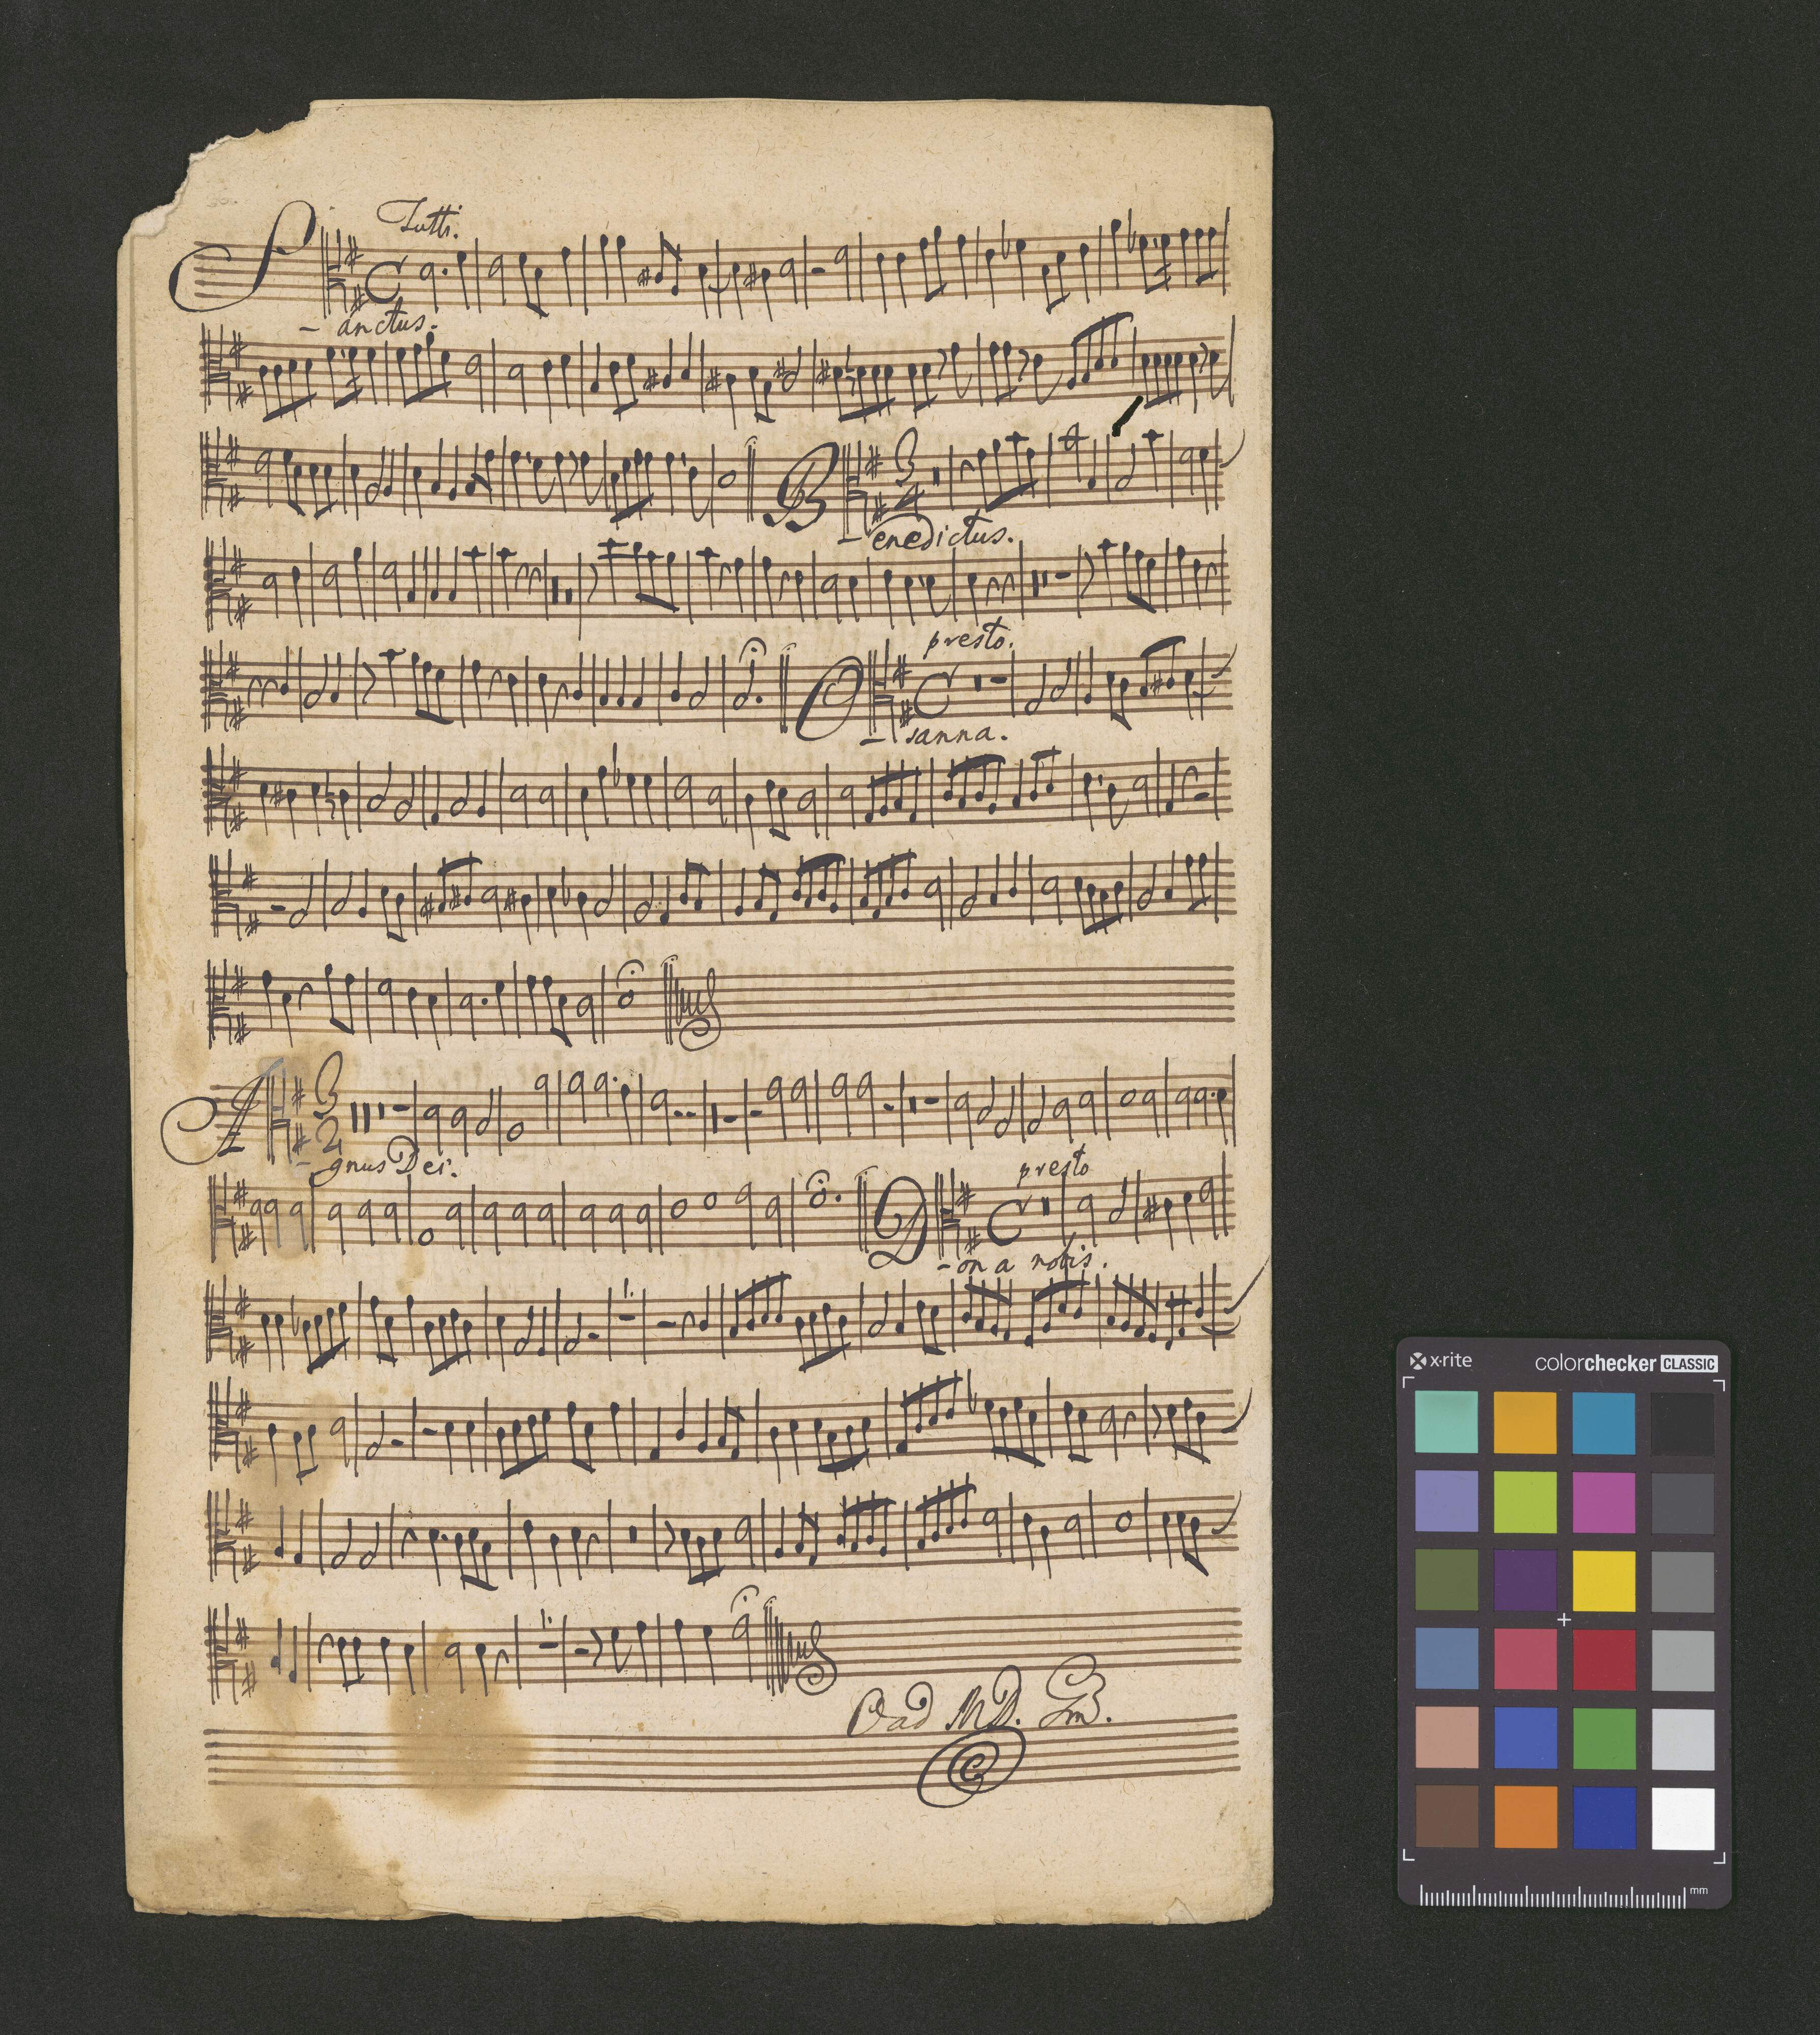 Tutti.
S
- anctus.
B
- enedictus.
presto.
O
- sanna.
A
- gnus Dei.
presto
D
- on a nobis.
x-rite colorchecker CLASSIC
mm